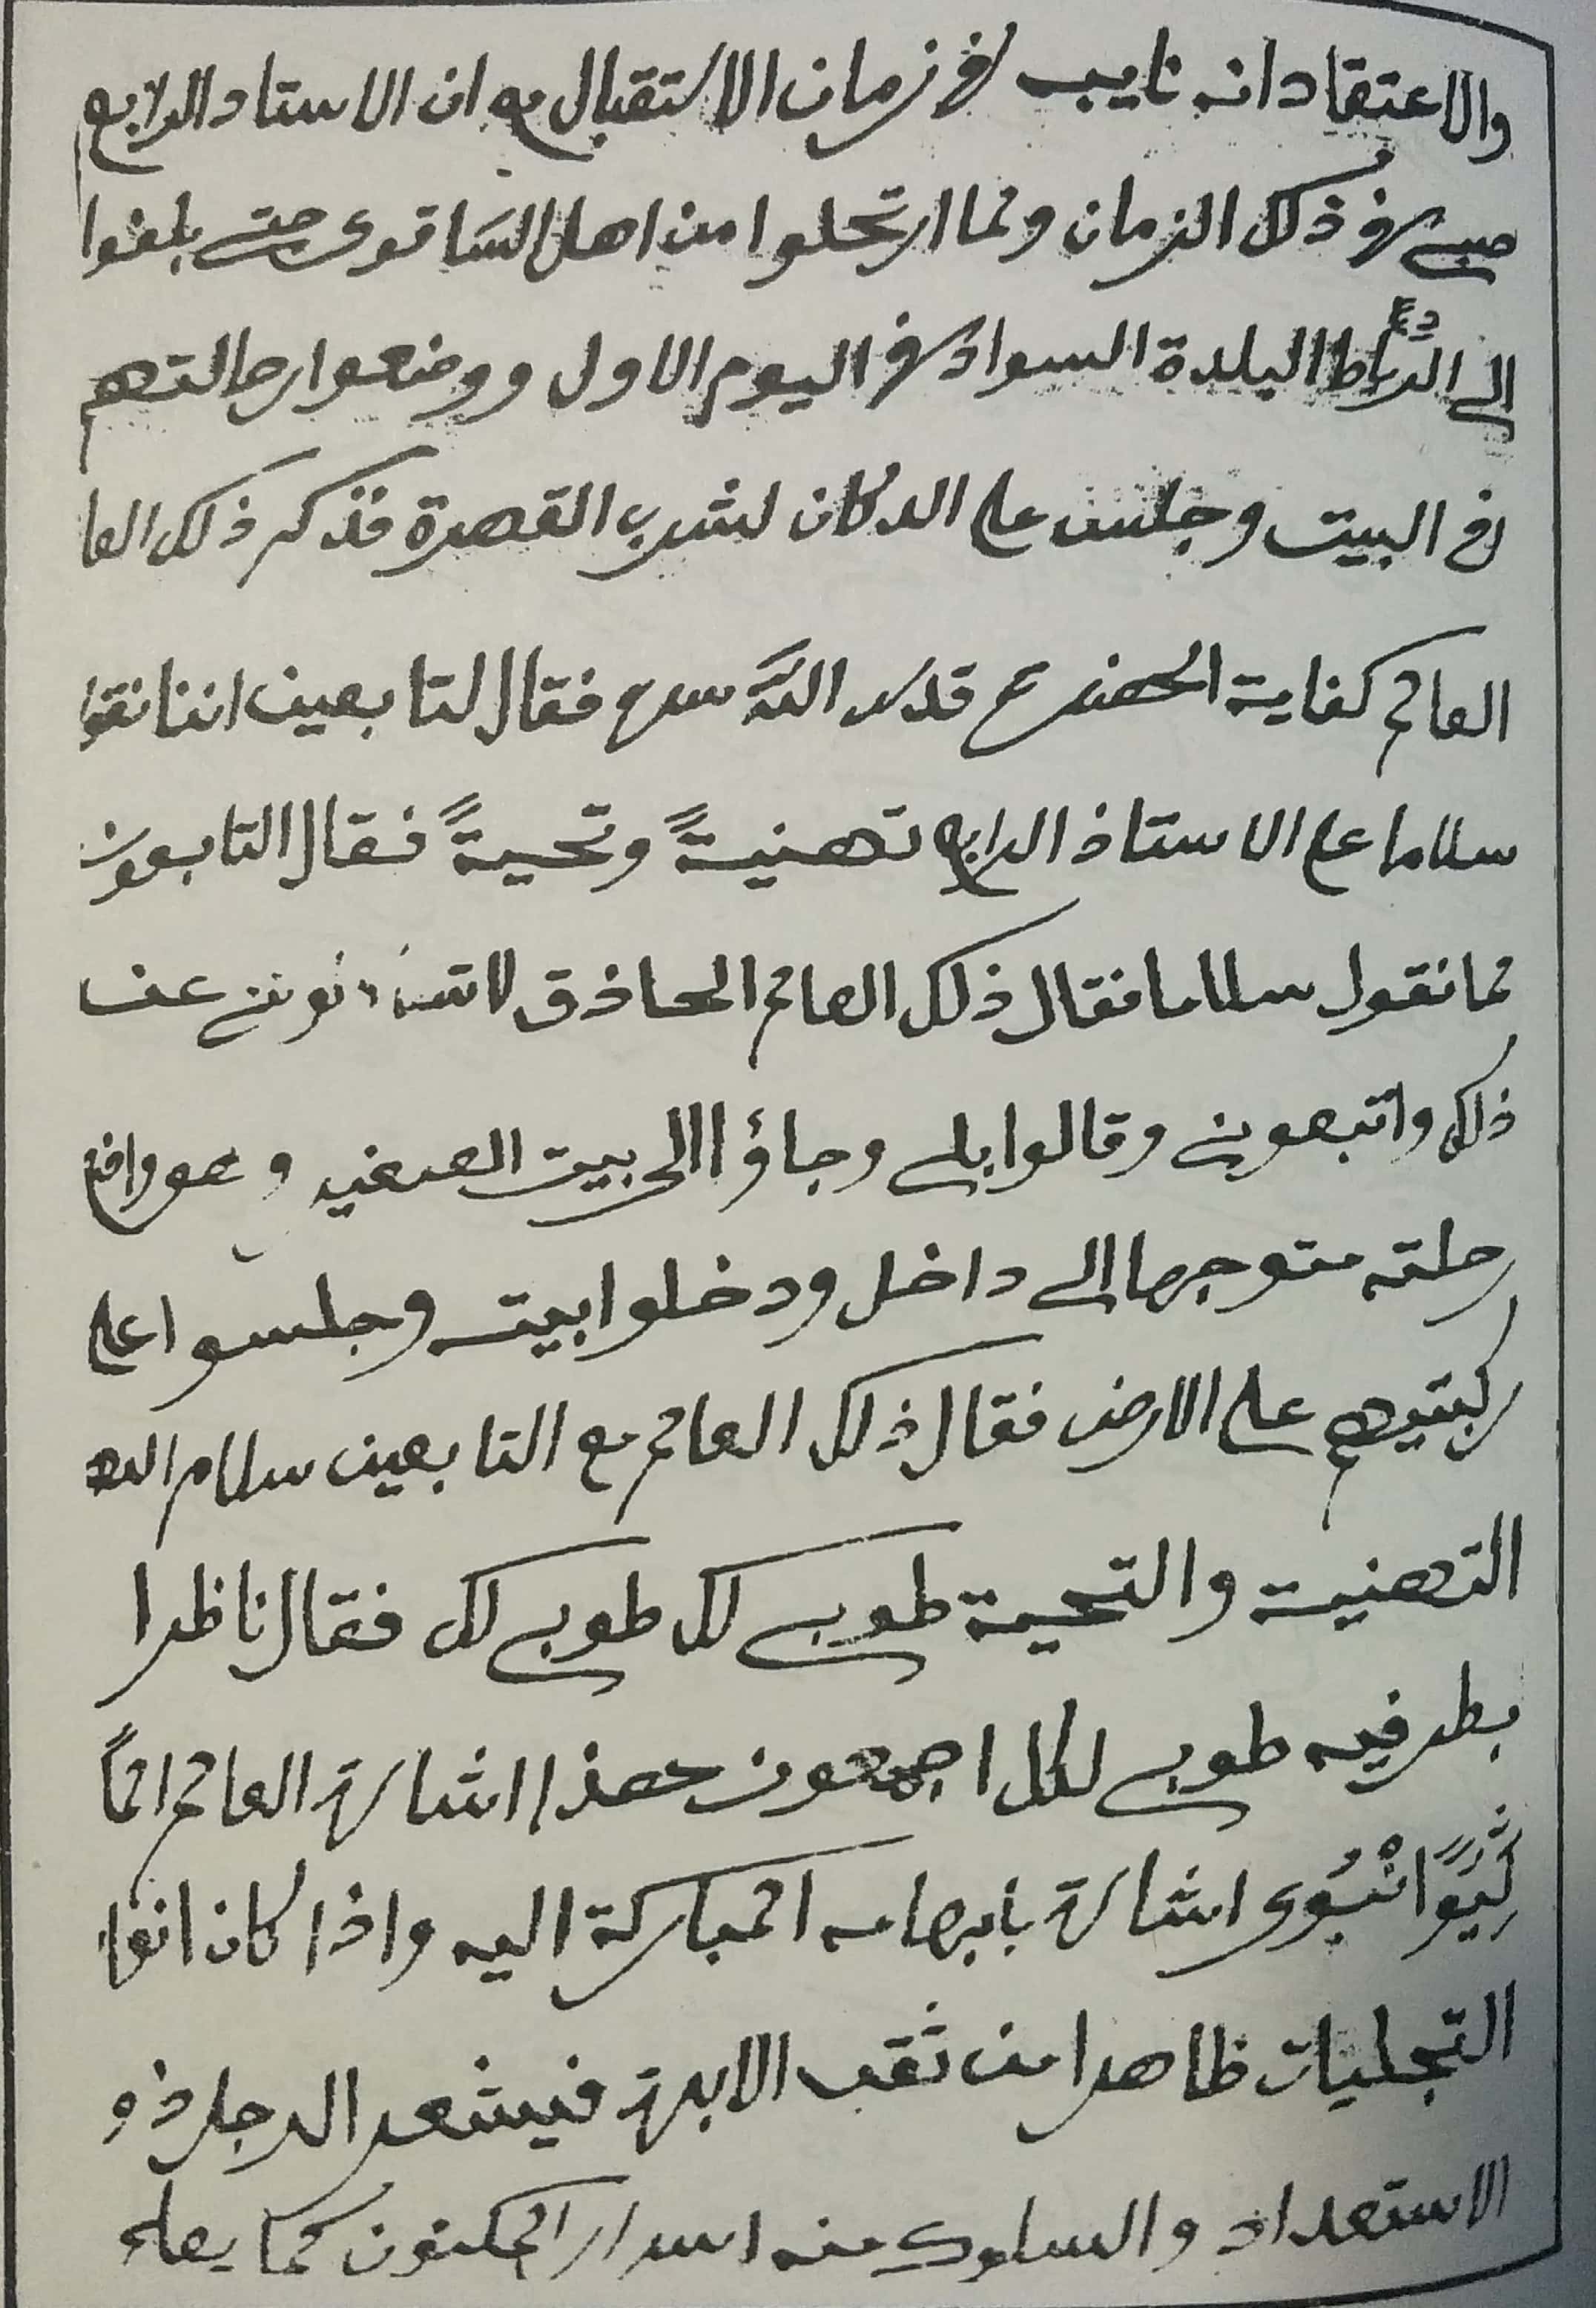 والاعتقاد انه نايب في زمان الاستقبال مع ان الاستاد الرابع
صبي في ذلك الزمان ولما ارتحلوا من اهل الساقوى حتى بلغوا
الى الرباط البلدة السواد في اليوم الاول ووضعوا رحالتهم
في البيت وجلس على الدكان لشرب القهوة فذكر ذلك العا
العالم كفاية الحضرة قدس الله سره فقال لتابعين اننا نقو
سلاما على الاستاذ الرابع تهنيةً وتحيةً فقال التابعون
لما نقول سلاما فقال ذلك العالم الحاذق لا عن
ذلك واتبعوني وقالوا بلى وجاؤا الى بيت الصغير وهو واقع
رحلته متوجها الى داخل ودخلوا بيته وجلسوا على
ركبتيهم على الارض فقال ذلك العالم مع التابعين سلام الله
التهنية والتحية طوبى لك طوبى لك فقال ناظرا
بطرفيه طوبى لكل اجمعون هذا اشارة العالم
اشارة بابهامه المباركة اليه واذا كان انوا
التجليات ظاهرا من ثقب الابرة فيشعر الرجل ذو
الاستعداد والسلوك منه اسرار المكنون كما يعلم